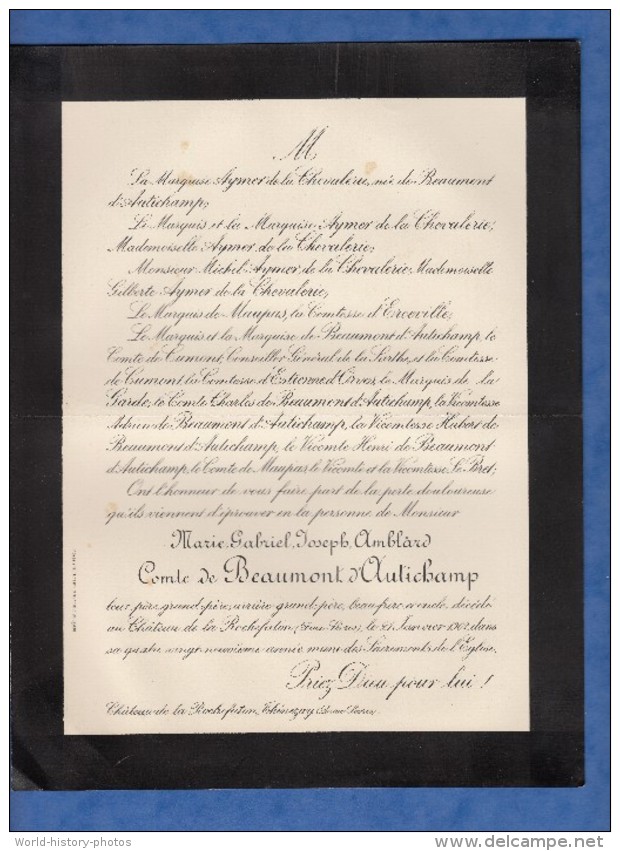 M
La Marquise Aymer de la Chevalerie, née de Beaumont
d'Autichamp;
Le Marquis et la Marquise Aymer de la Chevalerie,
Mademoiselle Aymer de la Chevalerie;
Monsieur Michel Aymer de la Chevalerie, Mademoiselle
Gilberte Aymer de la Chevalerie;
Le Marquis de Maupas, la Comtesse d'Erceville;
Le Marquis et la Marquise de Beaumont d'Autichamp, le
Comte de Cumont, Conseiller Général de la Sarthe, et la Comtesse
de Cumont, la Comtesse d'Estienne d'Orves, le Marquis de la
Garde, le Comte Charles de Beaumont d'Autichamp, la Vicomtesse
Adrien de Beaumont d'Autichamp, la Vicomtesse Hubert de
Beaumont d'Autichamp, le Vicomte Henri de Beaumont
d'Autichamp, le Comte de Maupas, le Vicomte et la Vicomtesse Le Bret;
Ont l'honneur de vous faire part de la perte douloureuse
qu'ils viennent d'éprouver en la personne de Monsieur
Marie, Gabriel, Joseph, Amblard
Comte de Beaumont d'Autichamp
leur père, grand-père, arrière grand-père, beau-frère et oncle, décédé
au Château de la Rochefaton, (Deux-Sèvres), le Janvier 1902, dans
sa quatre vingt neuvième année, muni des Sacrements de l'Eglise.
Priez Dieu pour lui!
Château de la Rochefaton, Thénezay (Deux-Sèvres).
World-history-photos
delcampe.net